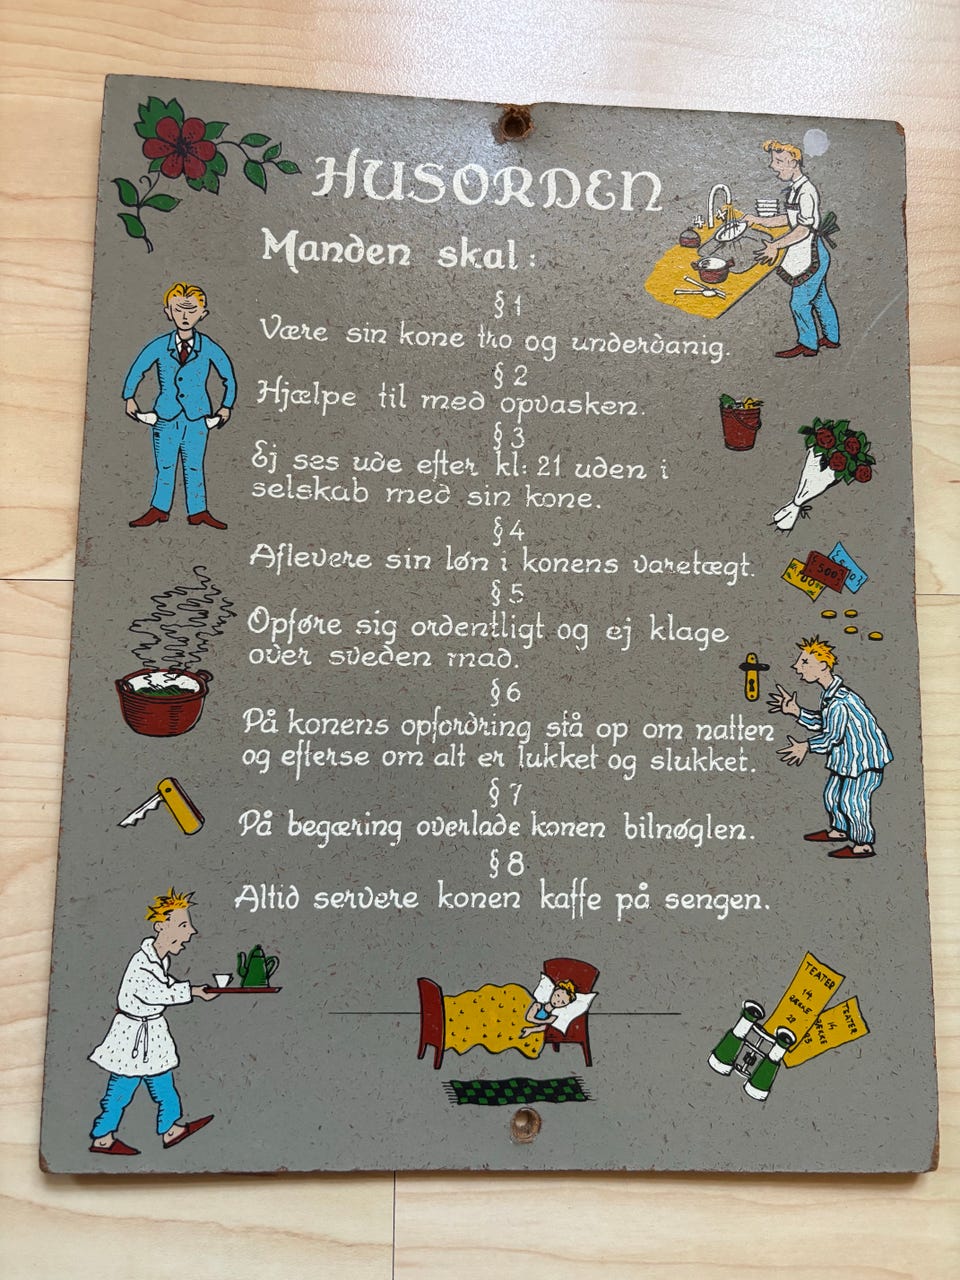 HUSORDEN
Manden skal:
§ 1
Være sin kone tro og underdanig.
§ 2
Hjælpe til med opvasken.
§ 3
Ej ses ude efter kl: 21 uden i
selskab med sin kone.
§ 4
Aflevere sin løn i konens varetægt.
§ 5
Opføre sig ordentligt og ej klage
over sveden mad.
§ 6
På konens opfordring stå op om natten
og efterse om alt er lukket og slukket.
§ 7
På begæring overlade konen bilnøglen.
§ 8
Altid servere konen kaffe på sengen.
500
TEATER
14
RÆKKE
TEATER
14
RÆKKE